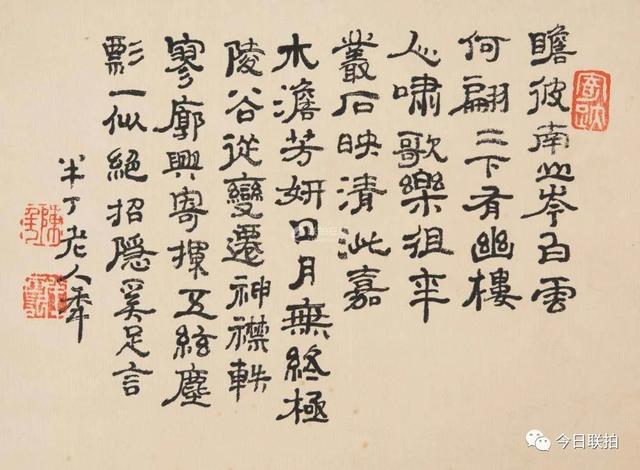 瞻彼南山岑白雲
何翩二下有幽棲
人嘯歌樂徂年
叢石映清泚嘉
木澹芳妍日月無終極
陵谷從變遷神襟軼
寥廓興寄揮五絃塵
影一似絕招隱奚足言
半丁老人年
今日联拍